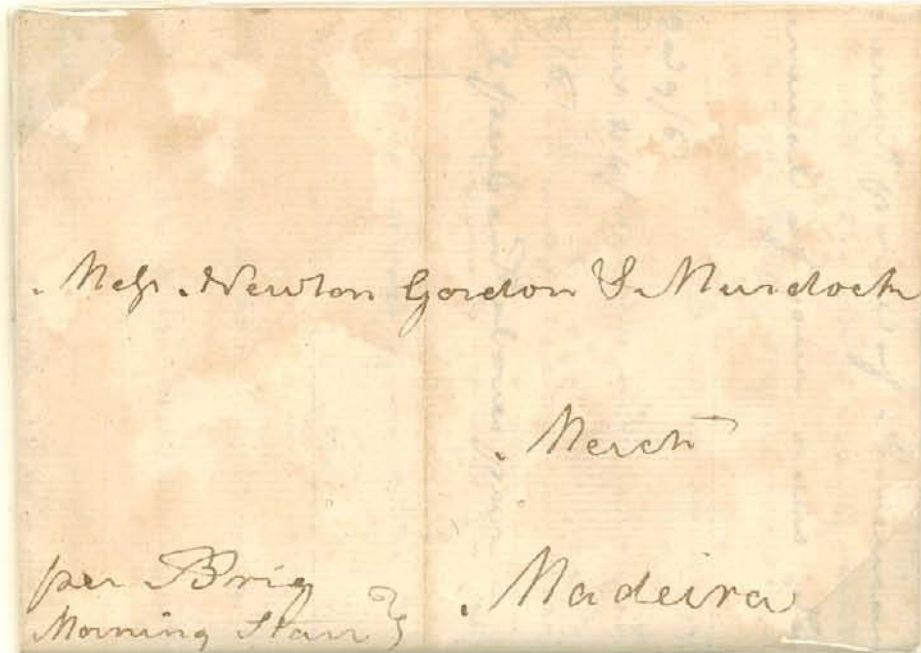 Mess Newton Gordon & Murdoch
Merch
Madeira
per Brig
Morning Starr